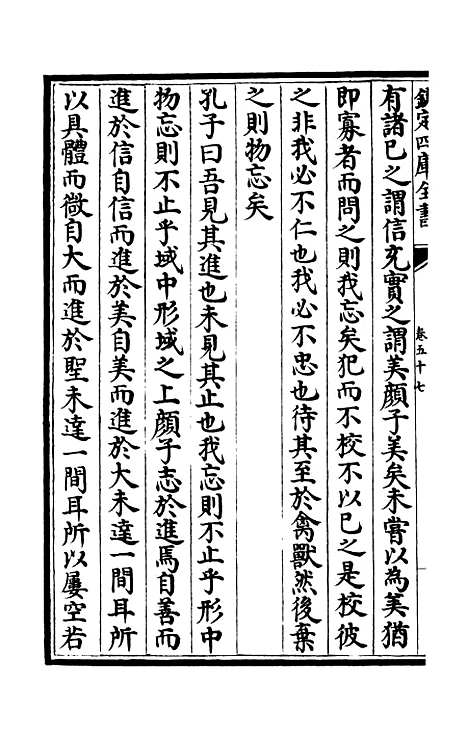 欽定四庫全書
卷五十七
有諸已之謂信充實之謂美顔子美矣未嘗以為美猶
即寡者而問之則我忘矣犯而不校不以已之是校彼
之非我必不仁也我必不忠也待其至於禽獸然後棄
之則物忘矣
孔子曰吾見其進也未見其止也我忘則不止乎形中
物忘則不止乎域中形域之上顔子志於進焉自善而
進於信自信而進於美自美而進於大未達一間耳所
以具體而微自大而進於聖未達一間耳所以屢空若